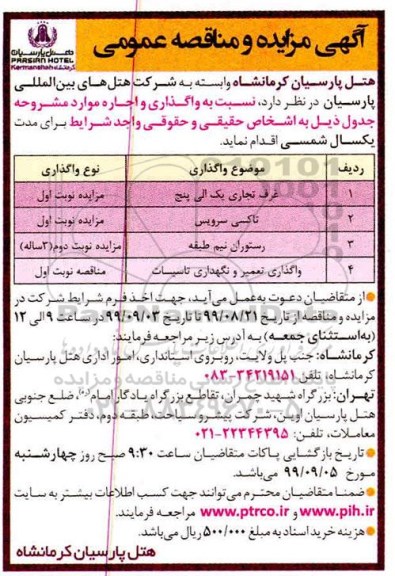 آگهی مزایده و مناقصه عمومی
هتل پارسیان
PARSIAN HOTEL
Kermanshah کرمانشاه
هتل پارسیان کرمانشاه وابسته به شرکت هتل‌های بین‌المللی
پارسیان در نظر دارد، نسبت به واگذاری و اجاره موارد مشروحه
جدول ذیل به اشخاص حقیقی و حقوقی واجد شرایط برای مدت
یکسال شمسی اقدام نماید.
ردیف موضوع واگذاری نوع واگذاری
۱ غرف تجاری یک الی پنج مزایده نوبت اول
۲ تاکسی سرویس مزایده نوبت اول
۳ رستوران نیم طبقه مزایده نوبت دوم(۳ساله)
۴ واگذاری تعمیر و نگهداری تاسیسات مناقصه نوبت اول
از متقاضیان دعوت به‌عمل می‌آید، جهت اخذ فرم شرایط شرکت در
مزایده و مناقصه از تاریخ ۹۹/۰۸/۲۱ تا تاریخ ۹۹/۰۹/۰۳ در ساعت ۹ الی ۱۲
(به‌استثنای جمعه) به آدرس زیر مراجعه فرمایند:
کرمانشاه: جنب پل ولایت، روبروی استانداری، امور اداری هتل پارسیان
کرمانشاه، تلفن: ۳۴۲۱۹۱۵۱-۰۸۳
تهران: بزرگراه شهید چمران، تقاطع بزرگراه یادگار امام(ره)، ضلع جنوبی
هتل پارسیان اوین، شرکت پیشرو سیاحت، طبقه دوم، دفتر کمیسیون
معاملات، تلفن: ۲۲۳۴۴۳۹۵-۰۲۱
تاریخ بازگشایی پاکات متقاضیان ساعت ۹:۳۰ صبح روز چهارشنبه
مورخ ۹۹/۰۹/۰۵ می‌باشد.
ضمنا متقاضیان محترم می‌توانند جهت کسب اطلاعات بیشتر به سایت
www.pih.ir و www.ptrco.ir مراجعه فرمایند.
هزینه خرید اسناد به مبلغ ۵۰۰/۰۰۰ ریال می‌باشد.
هتل پارسیان کرمانشاه